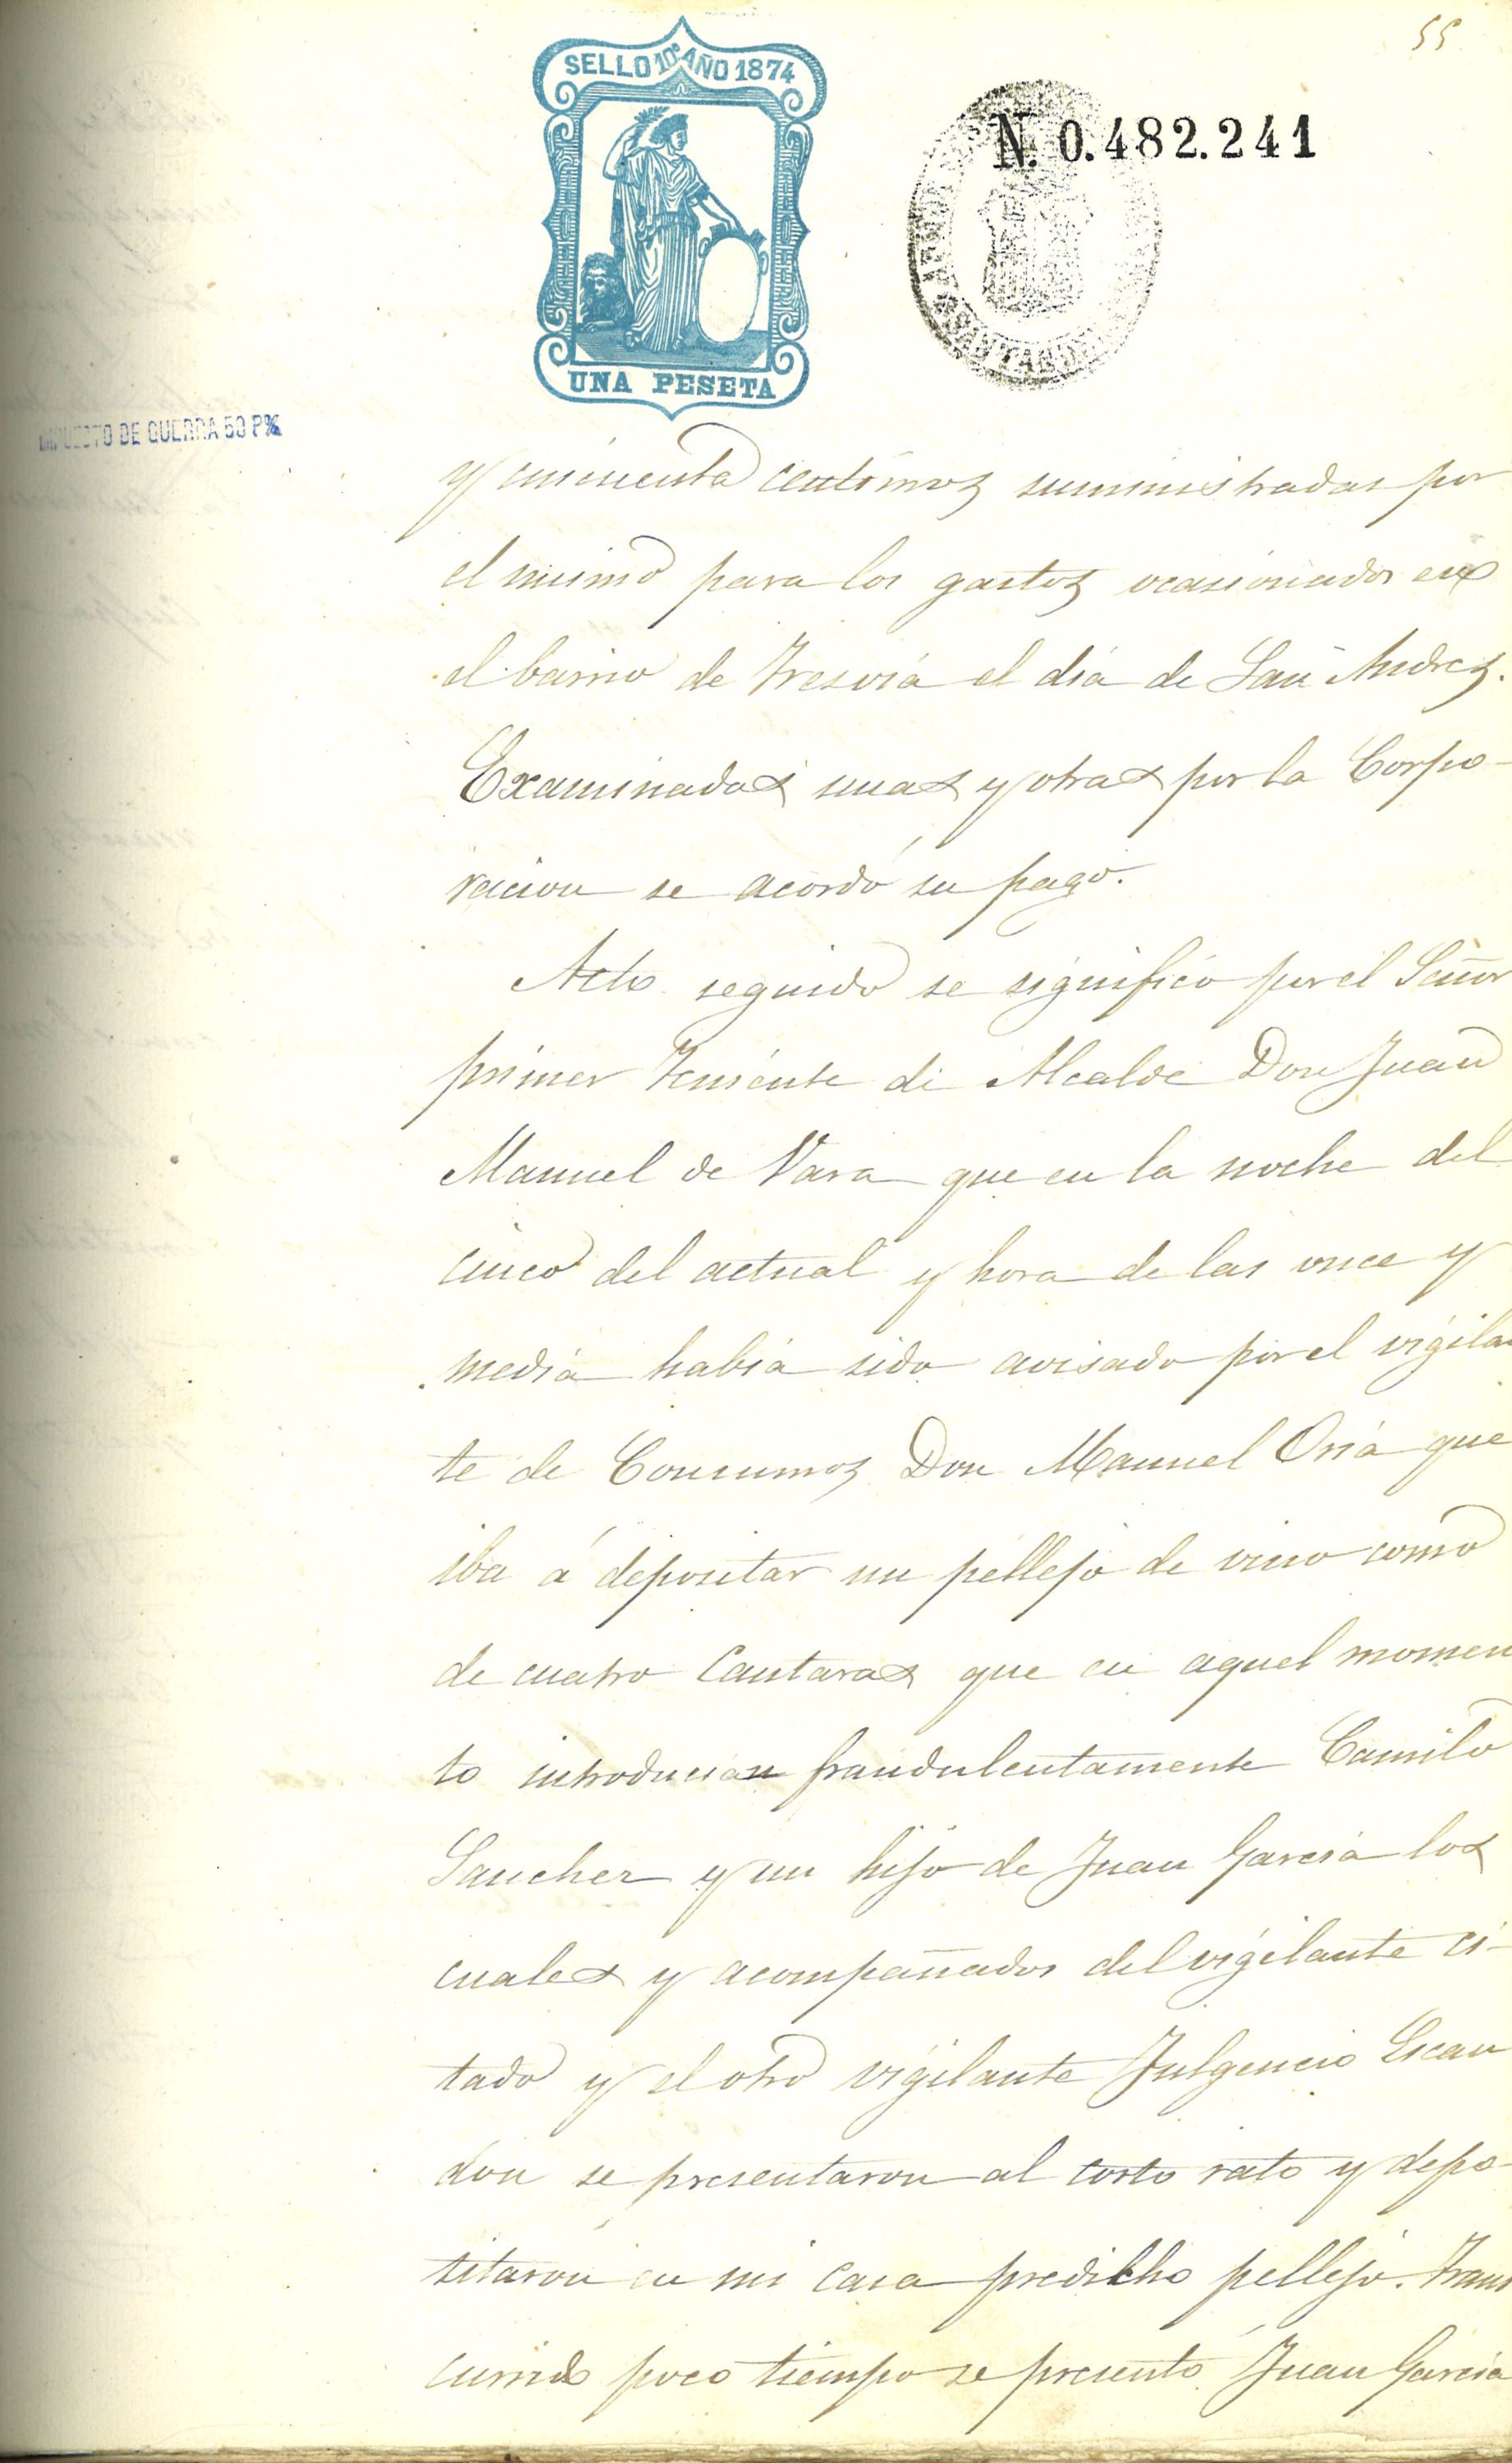 55
SELLO 10º AÑO 1874
N. 0.482.241
UNA PESETA
IMPUESTO DE GUERRA 50 P%
y cincuenta centimos suministradas por
el mismo para los gastos ocasionados en
el barrio de Tresvia el dia de San Andres.
Examinadas unas y otras por la Corpo-
racion se acordó su pago.
Acto seguido se significó por el Señor
primer Teniente de Alcalde Don Juan
Manuel de Vara que en la noche del
cinco del actual y hora de las once y
media habia sido avisado por el vigilan
te de Consumos Don Manuel Oria que
iba á depositar un pellejo de vino como
de cuatro Cantaras que en aquel momen
to introducian fraudulentamente Camilo
Sanchez y un hijo de Juan Garcia los
cuales y acompañados del vigilante ci-
tado y el otro vigilante Fulgencio Escan
don se presentaron al corto rato y depo-
sitaron en mi casa predicho pellejo. Trans
currido poco tiempo se presentó Juan Garcia